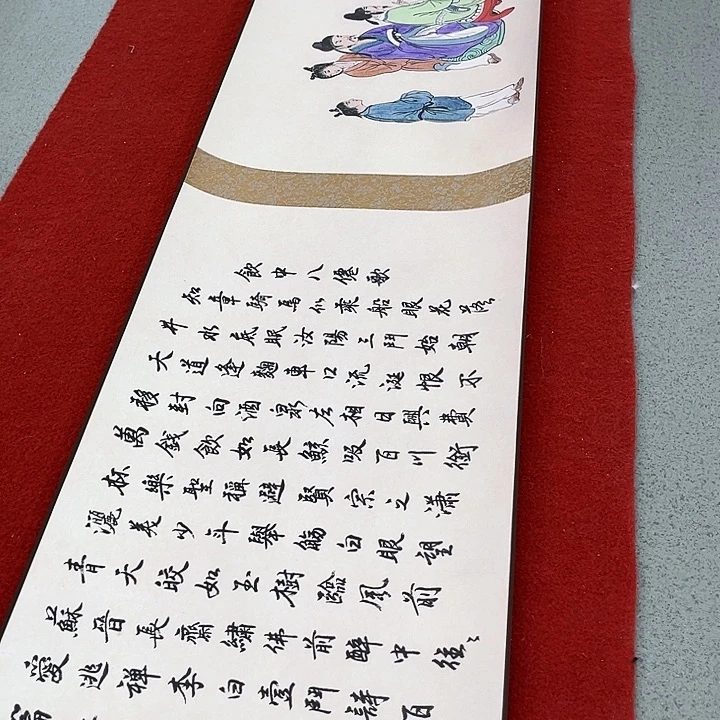 飲中八僊歌
知章騎馬似乘船眼花落
井水底眠汝陽三鬥始朝
天道逢麴車口流涎恨不
移封向酒泉左相日興費
萬錢飲如長鯨吸百川銜
杯樂聖稱避賢宗之瀟
灑美少年舉觴白眼望
青天皎如玉樹臨風前
蘇晉長齋繡佛前醉中往〻
愛逃禪李白壹鬥詩百